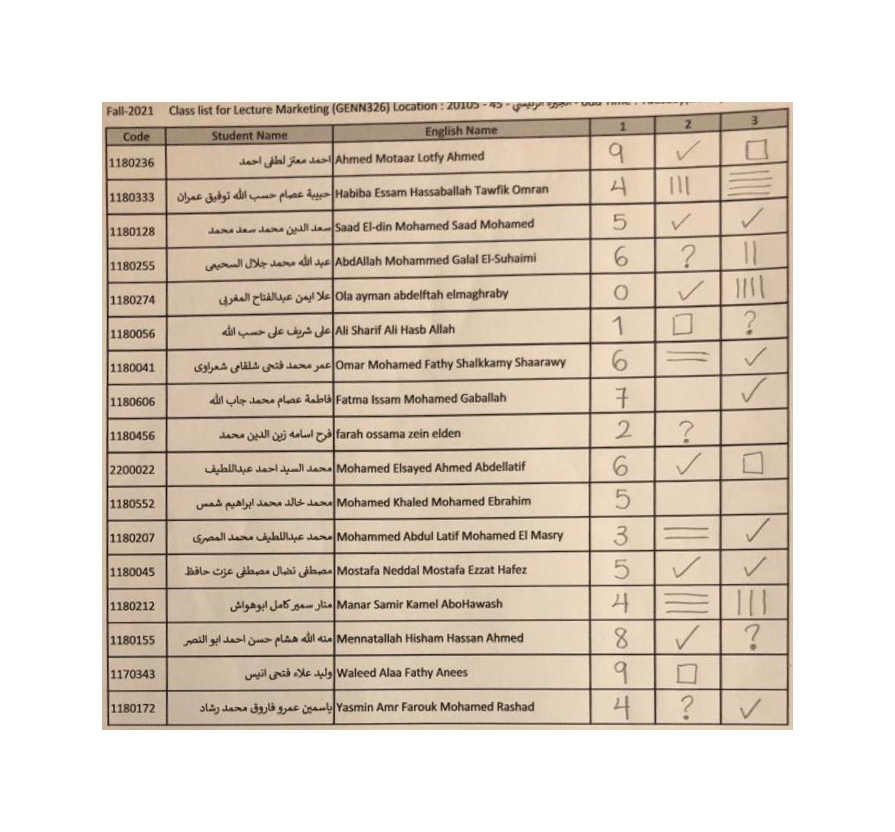 Fall-2021 Class list for Lecture Marketing (GENN326) Location : 20105 - 45 -
Code Student Name English Name 1 2 3
1180236 احمد معتز لطفى احمد Ahmed Motaaz Lotfy Ahmed 9 ✓ □
1180333 حبيبة عصام حسب الله توفيق عمران Habiba Essam Hassaballah Tawfik Omran 4 ||| ☰
1180128 سعد الدين محمد سعد محمد Saad El-din Mohamed Saad Mohamed 5 ✓ ✓
1180255 عبد الله محمد جلال السحيمى AbdAllah Mohammed Galal El-Suhaimi 6 ? ||
1180274 علا ايمن عبدالفتاح المغربي Ola ayman abdelftah elmaghraby 0 ✓ ||||
1180056 على شريف على حسب الله Ali Sharif Ali Hasb Allah 1 □ ?
1180041 عمر محمد فتحى شلقامى شعراوى Omar Mohamed Fathy Shalkkamy Shaarawy 6 = ✓
1180606 فاطمة عصام محمد جاب الله Fatma Issam Mohamed Gaballah 7 ✓
1180456 فرح اسامه زين الدين محمد farah ossama zein elden 2 ?
2200022 محمد السيد احمد عبداللطيف Mohamed Elsayed Ahmed Abdellatif 6 ✓ □
1180552 محمد خالد محمد ابراهيم شمس Mohamed Khaled Mohamed Ebrahim 5
1180207 محمد عبداللطيف محمد المصرى Mohammed Abdul Latif Mohamed El Masry 3 = ✓
1180045 مصطفى نضال مصطفى عزت حافظ Mostafa Neddal Mostafa Ezzat Hafez 5 ✓ ✓
1180212 منار سمير كامل ابوهواش Manar Samir Kamel AboHawash 4 ☰ |||
1180155 منه الله هشام حسن احمد ابو النصر Mennatallah Hisham Hassan Ahmed 8 ✓ ?
1170343 وليد علاء فتحى انيس Waleed Alaa Fathy Anees 9 □
1180172 ياسمين عمرو فاروق محمد رشاد Yasmin Amr Farouk Mohamed Rashad 4 ? ✓